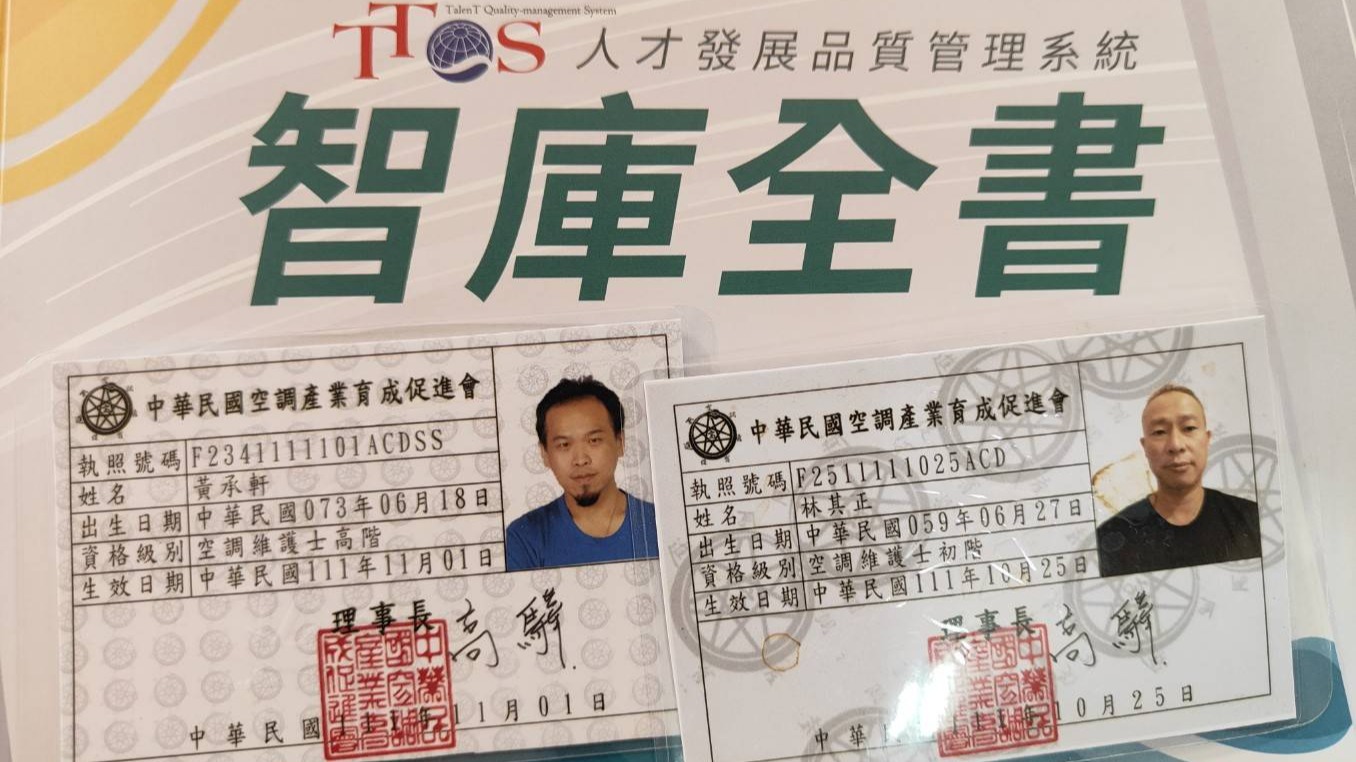 TalenT Quality-management System
TTQS 人才發展品質管理系統
智庫全書
中華民國空調產業育成促進會
執照號碼 F2341111101ACDSS
姓名 黃承軒
出生日期 中華民國073年06月18日
資格級別 空調維護士高階
生效日期 中華民國111年11月01日
理事長 高
中華民國111年11月01日
中華民國空調產業育成促進會
執照號碼 F2511111025ACD
姓名 林其正
出生日期 中華民國059年06月27日
資格級別 空調維護士初階
生效日期 中華民國111年10月25日
理事長 高
中華民國111年10月25日